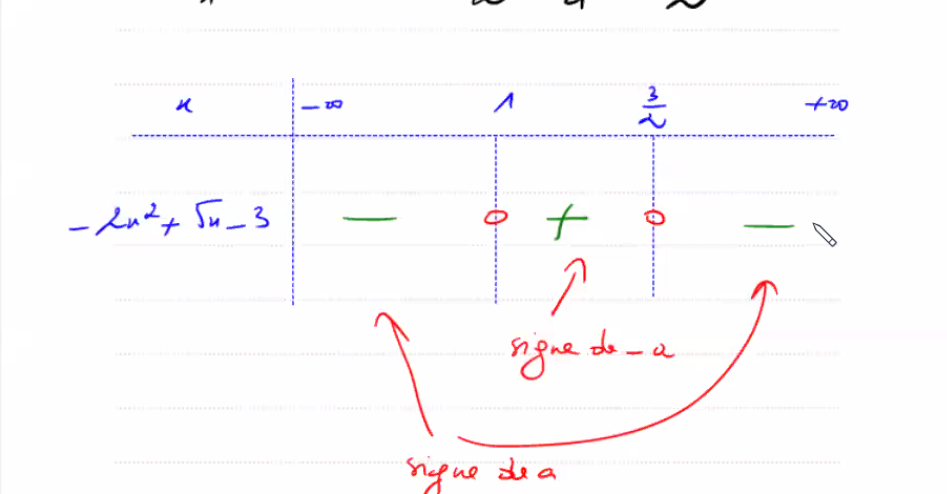 x -∞ 1 3/2 +∞
-2x² + 5x - 3 — 0 + 0 —
signe de -a
signe de a